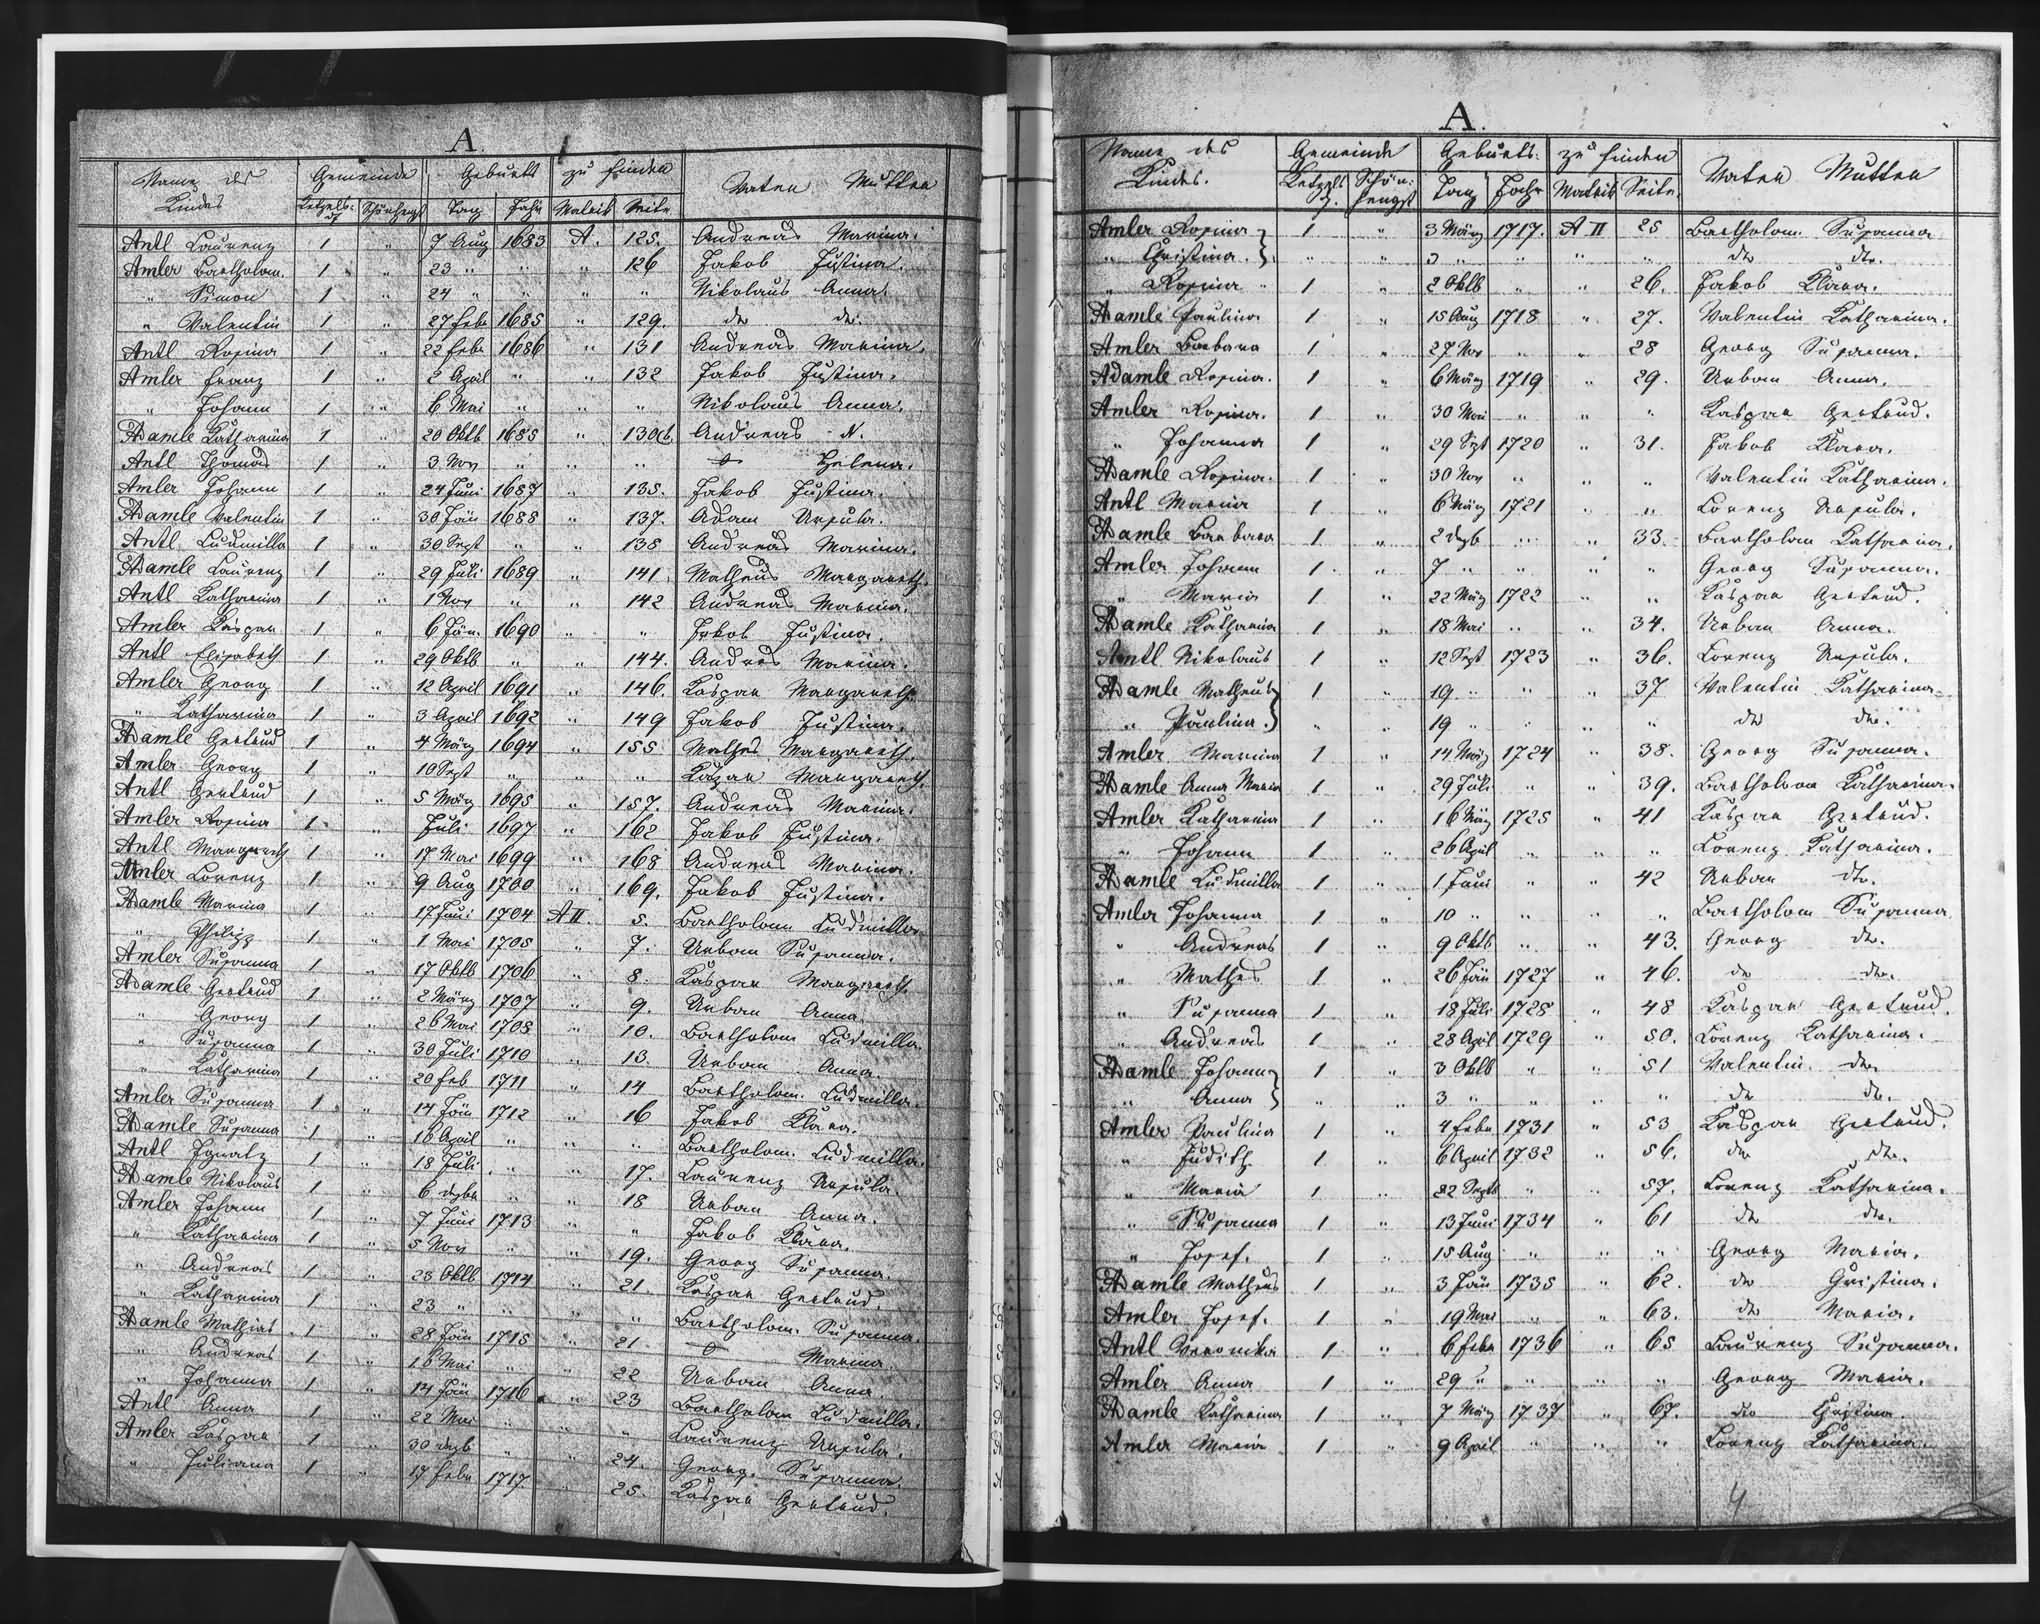 A.
Name des Kindes Gemeinde Geburts zu finden Vater Mutter
Ketzelsd. Schönhengst Tag Jahr Matrik Seite
Antl Laurenz 1 " 7 Aug 1683 A. 125. Andreas Marina.
Amler Bartholom. 1 " 23 " " " 126 Jakob Justina.
" Simon 1 " 24 " " " " Nikolaus Anna.
" Valentin 1 " 27 Febr 1685 " 129. dto dto.
Antl Rosina 1 " 22 Febr 1686 " 131 Andreas Marina.
Amler Franz 1 " 2 April " " 132 Jakob Justina.
" Johann 1 " 6 Mai " " " Nikolaus Anna.
Adamle Katharina 1 " 20 Oktb 1685 " 130 Andreas N.
Antl Thomas 1 " 3 Nov " " " Helena.
Amler Johann 1 " 24 Juni 1687 " 135. Jakob Justina.
Adamle Valentin 1 " 30 Jän 1688 " 137. Adam Ursula.
Antl Ludmilla 1 " 30 Sept " " 138 Andreas Marina.
Adamle Laurenz 1 " 29 Juli 1689 " 141 Matheus Margareth.
Antl Katharina 1 " 1 Nov " " 142 Andreas Marina.
Amler Kaspar 1 " 6 Jän. 1690 " " Jakob Justina.
Antl Elisabeth 1 " 29 Oktb " " 144. Andres Marina.
Amler Georg 1 " 12 April 1691 " 146. Kaspar Margareth.
" Katharina 1 " 3 April 1692 " 149 Jakob Justina.
Adamle Gertrud 1 " 4 März 1694 " 155 Mathes Margareth.
Amler Georg 1 " 10 Sept " " " Kaspar Margareth.
Antl Gertrud 1 " 5 März 1695 " 157. Andreas Marina.
Amler Rosina 1 " Juli 1697 " 162 Jakob Justina.
Antl Margareth 1 " 17 Mai 1699 " 168 Andreas Marina.
Amler Lorenz 1 " 9 Aug 1700 " 169. Jakob Justina.
Adamle Marina 1 " 17 Juni 1704 A II. 5. Bartholom Ludmilla.
" Philipp 1 " 1 Mai 1705 " 7. Urban Susanna.
Amler Susanna 1 " 17 Oktb 1706 " 8. Kaspar Margareth.
Adamle Gertrud 1 " 2 März 1707 " 9. Urban Anna.
" Georg 1 " 26 Mai 1708 " 10. Bartholom Ludmilla.
" Susanna 1 " 30 Juli 1710 " 13. Urban Anna
" Katharina 1 " 20 Feb 1711 " 14 Bartholom. Ludmilla.
Amler Susanna 1 " 14 Jän 1712 " 16 Jakob Klara.
Adamle Susanna 1 " 16 April " " " Bartholom. Ludmilla.
Antl Ignatz 1 " 18 Juli " " 17. Laurenz Ursula.
Adamle Nikolaus 1 " 6 dezbr " " 18 Urban Anna.
Amler Johann 1 " 7 Juni 1713 " " Jakob Klara.
" Katharina 1 " 5 Nov " " 19. Georg Susanna.
" Andreas 1 " 28 Oktb 1714 " 21. Kaspar Gertrud.
" Katharina 1 " 23 " " " " Bartholom. Susanna.
Adamle Mathias 1 " 28 Jän 1715 " 21 Marina
" Andreas 1 " 16 Mai " " 22 Urban Anna
" Johanna 1 " 14 Jän 1716 " 23 Bartholom Ludmilla.
Antl Anna 1 " 22 Mai " " " Laurenz Ursula.
Amler Kaspar 1 " 30 dezb " " 24. Georg. Susanna.
" Juliana 1 " 17 Febr 1717. " 25. Kaspar Gertrud.
A.
Name des Kindes. Gemeinde Geburts: zu finden Vater Mutter
Ketzelsd. Schön: hengst Tag Jahr Matrik Seite
Amler Rosina 1 " 3 März 1717. A II 25 Bartholom. Susanna
" Christina. " " 3 " " " " dto dto.
" Rosina 1 " 2 Oktb " " 26. Jakob Klara.
Adamle Paulina 1 " 15 Aug 1718 " 27. Valentin Katharina.
Amler Barbara 1 " 27 Nov " " 28 Georg Susanna.
Adamle Rosina. 1 " 6 März 1719 " 29. Urban Anna.
Amler Rosina. 1 " 30 Mai " " " Kaspar Gertrud.
" Johanna 1 " 29 Sept 1720 " 31. Jakob Klara.
Adamle Rosina. 1 " 30 Nov " " " Valentin Katharina.
Antl Marina 1 " 6 März 1721 " " Lorenz Ursula.
Adamle Barbara 1 " 2 dezb " " 33. Bartholom Katharina.
Amler Johann 1 " 7 " " " " Georg Susanna.
" Maria 1 " 22 März 1722 " " Kaspar Gertrud.
Adamle Katharina 1 " 18 Mai " " 34. Urban Anna.
Antl Nikolaus 1 " 12 Sept 1723 " 36. Lorenz Ursula.
Adamle Matheus 1 " 19 " " " 37 Valentin Katharina.
" Paulina. " " 19 " " " " dto dto.
Amler Marina 1 " 14 März 1724 " 38. Georg Susanna.
Adamle Anna Maria 1 " 29 Juli " " 39. Bartholom Katharina.
Amler Katharina 1 " 16 März 1725 " 41 Kaspar Gertrud.
" Johann 1 " 26 April " " " Lorenz Katharina.
Adamle Ludmilla 1 " 1 Juni " " 42 Urban dto.
Amler Johanna 1 " 10 " " " " Bartholom Susanna
" Andreas 1 " 9 Oktb " " 43. Georg dto.
" Mathes 1 " 26 Jän 1727 " 46. dto dto.
" Susanna 1 " 18 Juli 1728 " 48 Kaspar Gertrud.
" Andreas 1 " 28 April 1729 " 50. Lorenz Katharina.
Adamle Johann 1 " 3 Oktb " " 51 Valentin. dto
" Anna " " 3 " " " " dto dto.
Amler Paulina 1 " 4 Febr 1731 " 53 Kaspar Gertrud.
" Judith 1 " 6 April 1732 " 56. dto dto.
" Maria 1 " 22 Septb " " 57. Lorenz Katharina.
" Susanna 1 " 13 Juni 1734 " 61 dto dto.
" Josef. 1 " 15 Aug " " " Georg Maria.
Adamle Matheus 1 " 3 Jän 1735 " 62. dto Christina.
Amler Josef. 1 " 19 Mai " " 63. dto Maria.
Antl Veronika 1 " 6 Febr 1736 " 65 Laurenz Susanna.
Amler Anna 1 " 29 " " " " Georg Maria.
Adamle Katharina 1 " 7 März 1737 " 67. dto Christina.
Amler Maria 1 " 9 April " " " Lorenz Katharina.
4